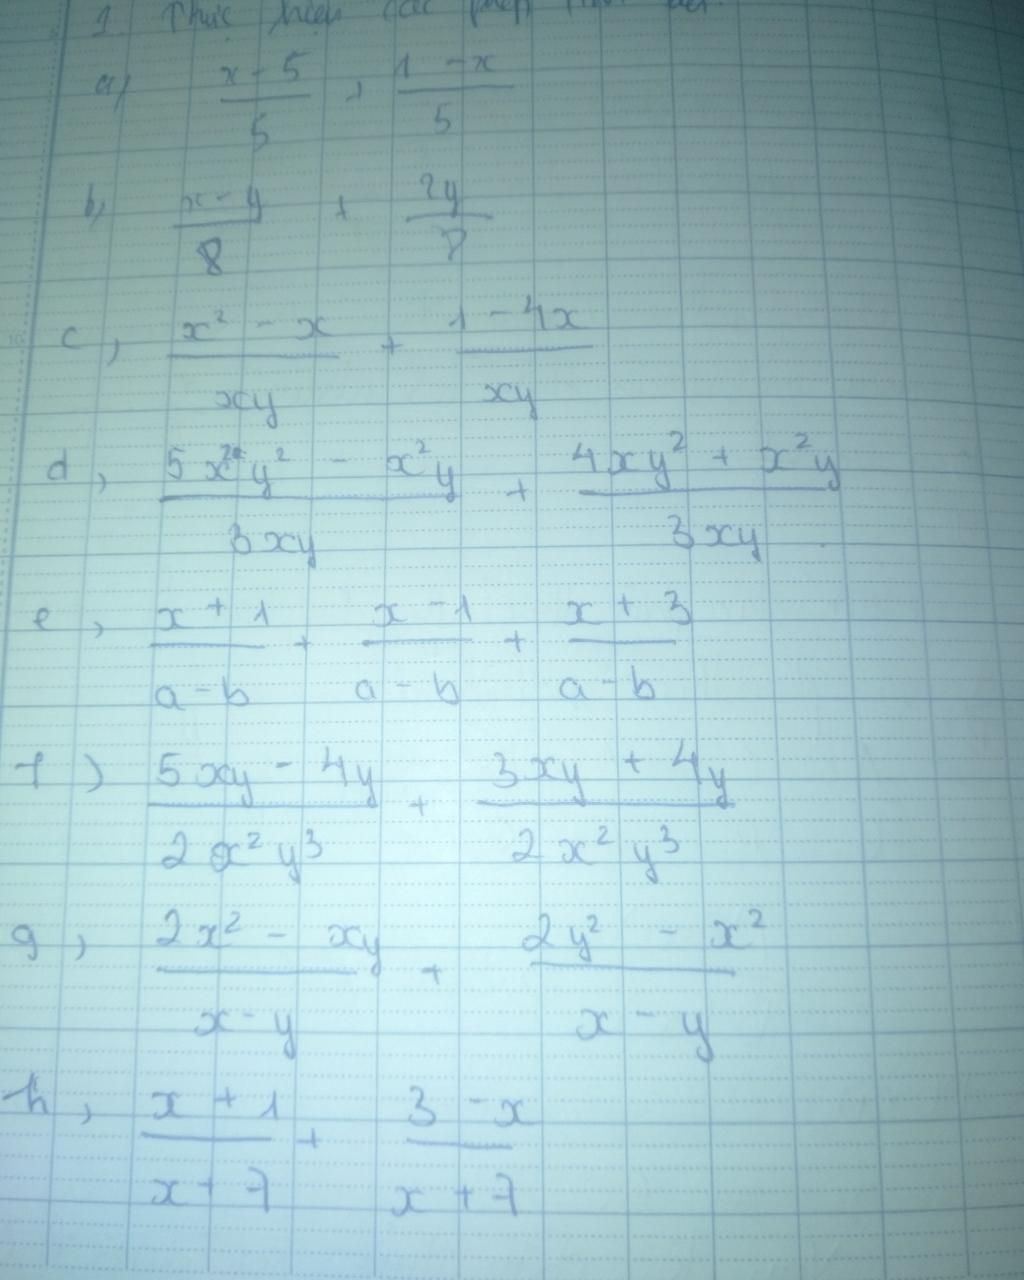 1. Thực hiện các phép tính sau:
a) (x - 5)/5 + (1 - x)/5
b, (x - y)/8 + 2y/8
c, (x² - x)/xy + (1 - 4x)/xy
d, (5x²y² - x²y)/3xy + (4xy² + x²y)/3xy
e, (x + 1)/(a - b) + (x - 1)/(a - b) + (x + 3)/(a - b)
f) (5xy - 4y)/2x²y³ + (3xy + 4y)/2x²y³
g, (2x² - xy)/(x - y) + (2y² - x²)/(x - y)
h, (x + 1)/(x + 7) + (3 - x)/(x + 7)